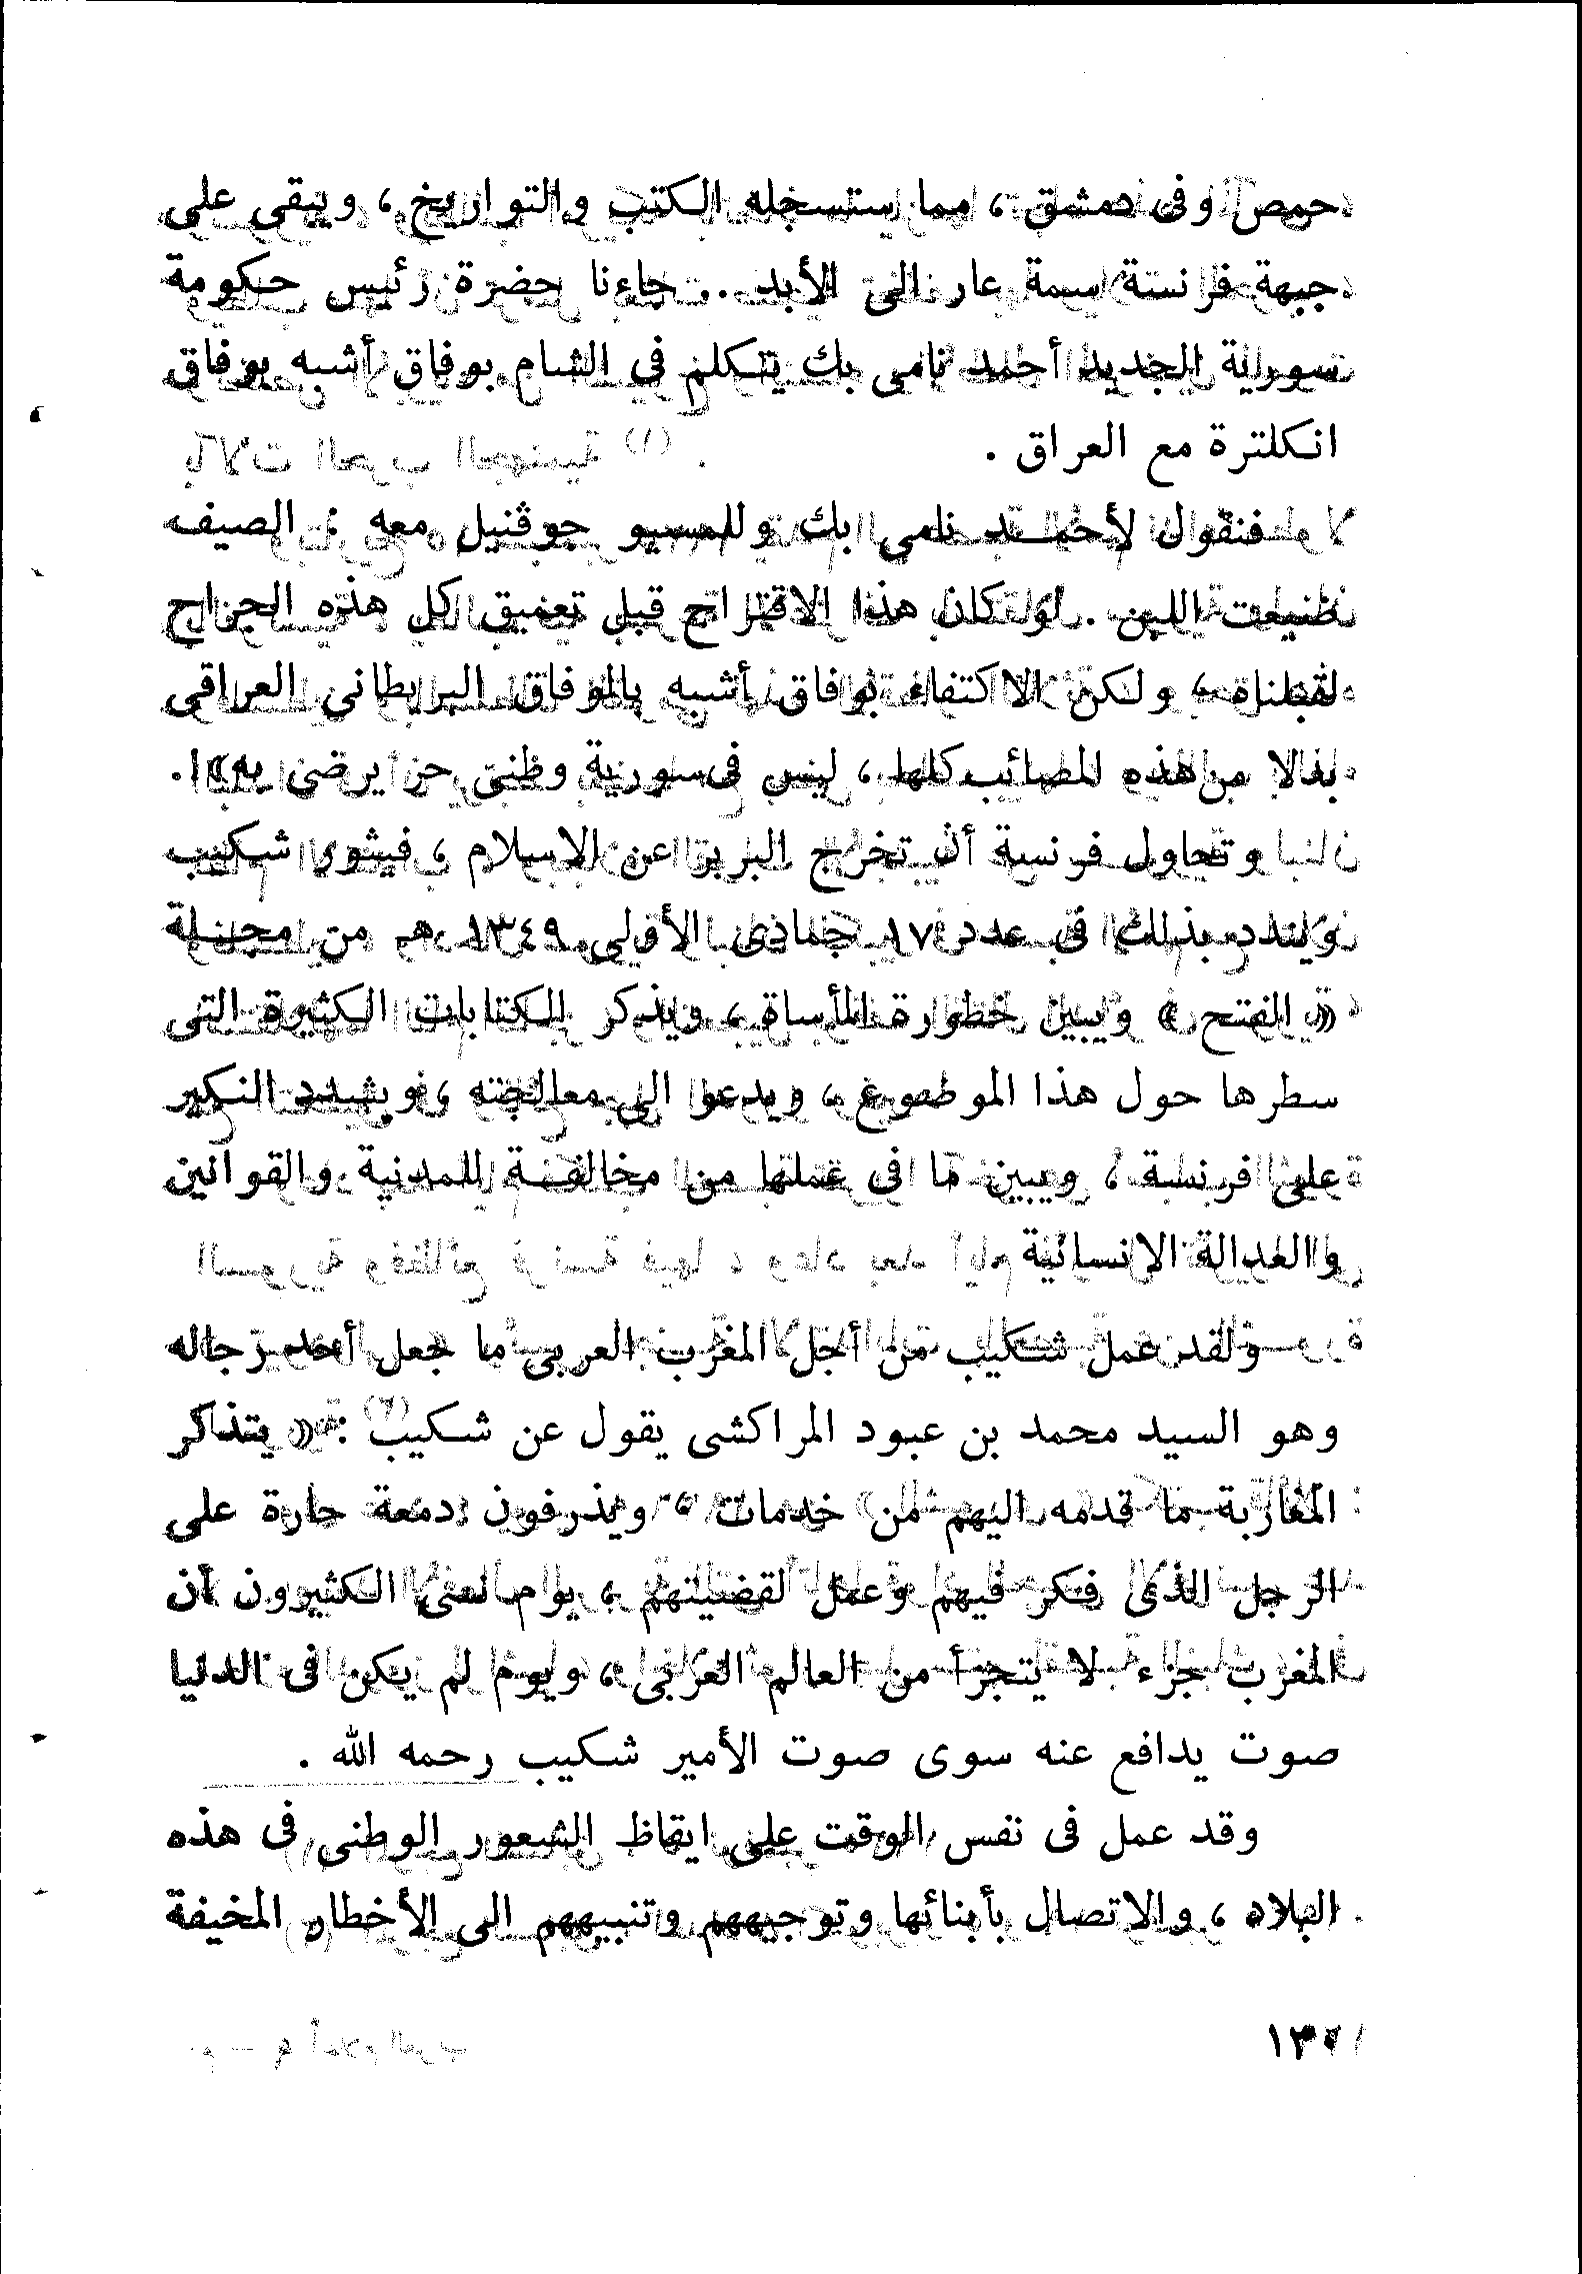 حمص وفى دمشق ، مما ستسجله الكتب والتواريخ ، ويبقى على
جبهة فرنسة سمة عار الى الأبد .. جاءنا حضرة رئيس حكومة
سورية الجديد أحمد نامى بك يتكلم في الشام بوفاق أشبه بوفاق
انكلترة مع العراق .
فنقول لأحمد نامى بك وللمسيو جوڤنيل معه : الصيف
ضيعت اللبن . لو كان هذا الاقتراح قبل تعميق كل هذه الجراح
لقبلناه ، ولكن الاكتفاء بوفاق أشبه بالوفاق البريطانى العراقى
بدلا من هذه المصائب كلها ، ليس فى سورية وطنى حر يرضى به » .
وتحاول فرنسة أن تخرج البربر عن الاسلام ، فيثور شكيب
ويندد بذلك فى عدد ١٧ جمادى الأولى ١٣٤٩ هـ من مجلة
« الفتح » ويبين خطورة المأساة ، ويذكر الكتابات الكثيرة التى
سطرها حول هذا الموضوع ، ويدعو الى معالجته ، ويشدد النكير
على فرنسة ، ويبين ما فى عملها من مخالفة للمدنية والقوانين
والعدالة الانسانية
ولقد عمل شكيب من أجل المغرب العربى ما جعل أحد رجاله
وهو السيد محمد بن عبود المراكشى يقول عن شكيب : « يتذاكر
المغاربة ما قدمه اليهم من خدمات ، ويذرفون دمعة حارة على
الرجل الذى فكر فيهم وعمل لقضيتهم ، يوم نسى الكثيرون أن
المغرب جزء لا يتجزأ من العالم العربى ، ويوم لم يكن فى الدنيا
صوت يدافع عنه سوى صوت الأمير شكيب رحمه الله .
وقد عمل فى نفس الوقت على ايقاظ الشعور الوطنى فى هذه
البلاد ، والاتصال بأبنائها وتوجيههم وتنبيههم الى الأخطار المخيفة